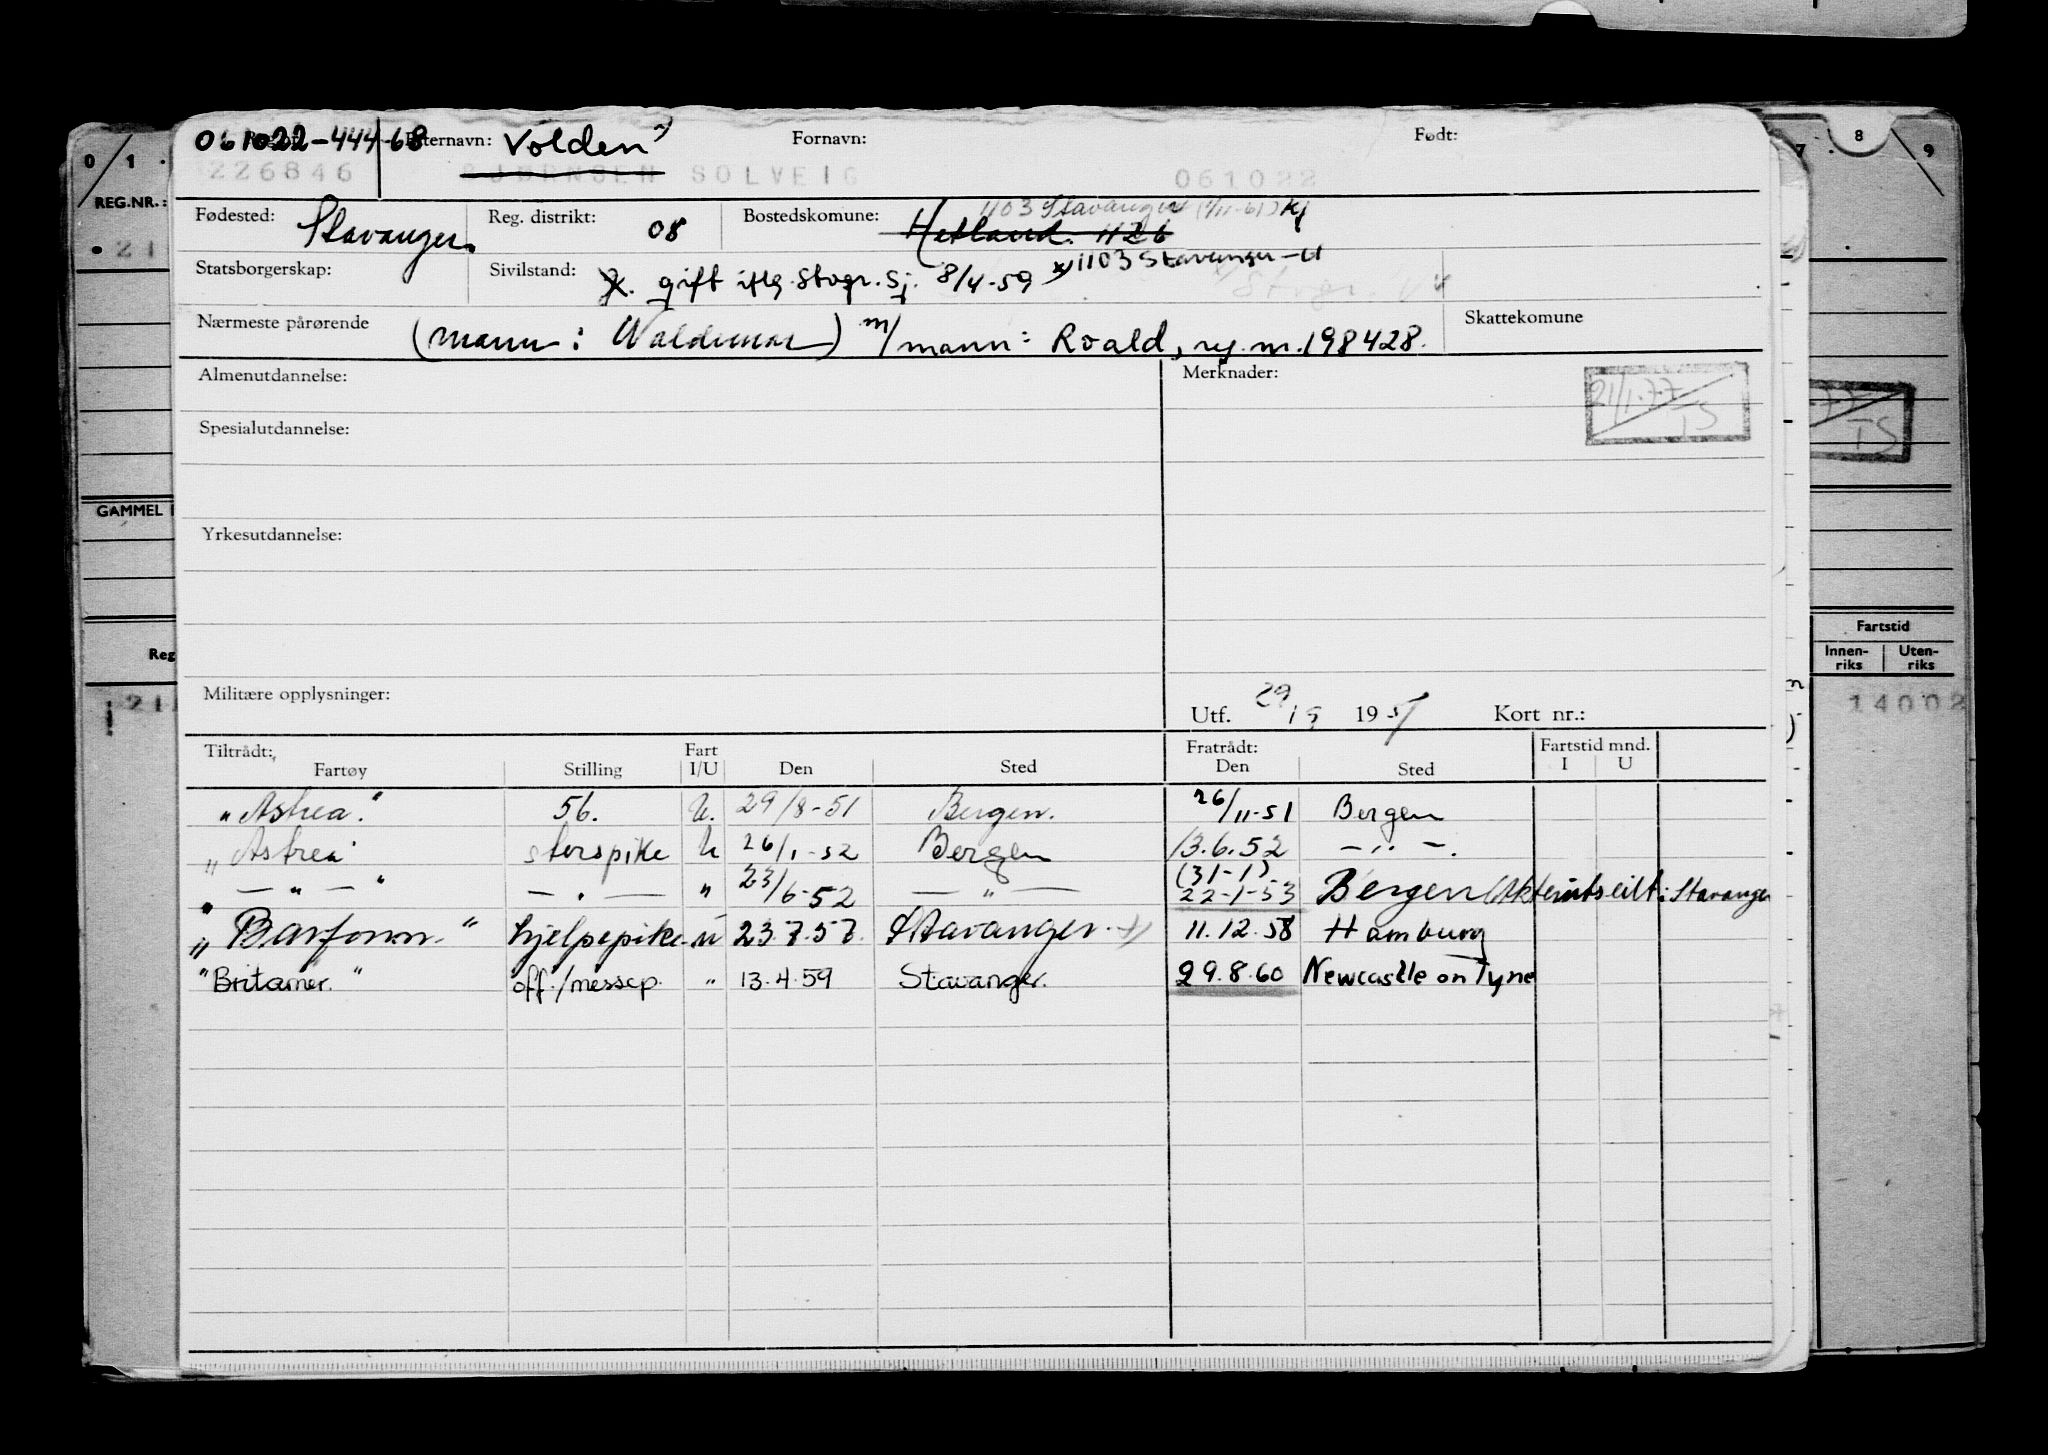 0 1 8 7 9
061022-444-68 Etternavn: Volden Fornavn: Født:
226846 SOLVEIG 061022
REG.NR.:
Fødested: Stavanger. Reg. distrikt: 08 Bostedskomune: Hetland. 1126 1103 Stavanger
Statsborgerskap: Sivilstand: gift iflg. Stvgr. Sj. 8/4-59 x) 1103 Stavanger-U
Nærmeste pårørende (mann: Waldemar) m/mann: Roald, reg. nr. 198428. Skattekomune
Almenutdannelse: Merknader: 21/1-77 TS
Spesialutdannelse:
GAMMEL
Yrkesutdannelse:
Fartstid
Innen-riks Uten-riks
Reg
Militære opplysninger: Utf. 29/9 1951 Kort nr.:
14002
Tiltrådt: Fart Fratrådt: Fartstid mnd.
Fartøy Stilling I/U Den Sted Den Sted I U
"Astrea." 56. U. 29/8-51 Bergen. 26/11-51 Bergen
"Astrea" storspike U 26/1-52 Bergen 13.6.52 — " —.
" — " — " — " — " 23/6-52 — " — (31-1) 22-1-53 Bergen Stavanger
"Barfonn." hjelpepike U 23.7.57. Stavanger. 11.12.58 Hamburg
"Britamer." off./messep. " 13.4.59 Stavanger. 29.8.60 Newcastle on Tyne